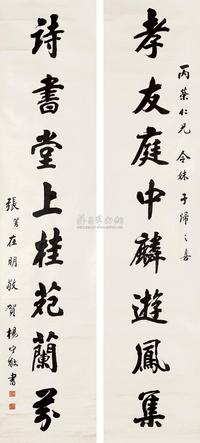 丙葉仁兄令妹于歸之喜
孝友庭中麟遊鳳集
詩書堂上桂苑蘭芬
張在明敬賀楊守敬書